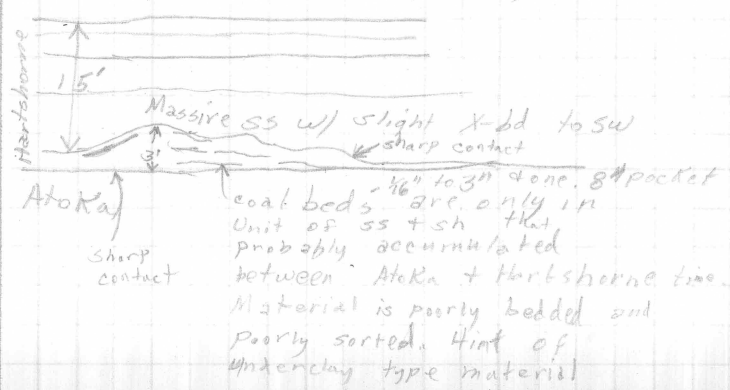 Hartshorne
15'
Massive ss w/ slight X-bd to sw
3'
sharp contact
Atoka
sharp
contact
1/16" to 3" & one 8" pocket
coal beds are only in
Unit of ss + sh that
probably accumulated
between Atoka + Hartshorne time.
Material is poorly bedded and
poorly sorted. Hint of
underclay type material